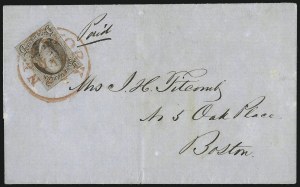 Paid
Mrs J. H. Titcomb
No 5 Oak Place
Boston.